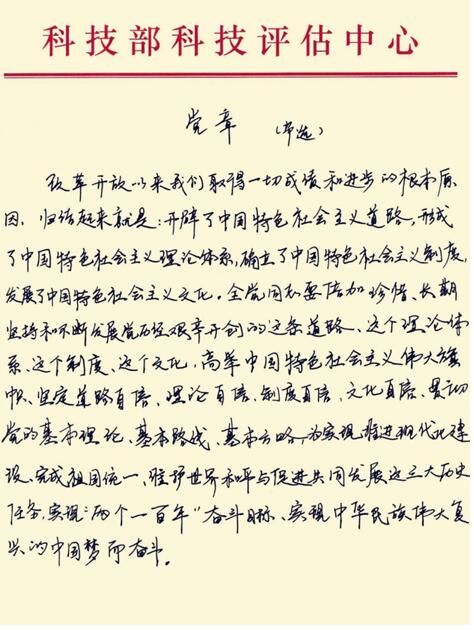 科技部科技评估中心
党章 (节选)
改革开放以来我们取得一切成绩和进步的根本原
因，归结起来就是：开辟了中国特色社会主义道路，形成
了中国特色社会主义理论体系，确立了中国特色社会主义制度，
发展了中国特色社会主义文化。全党同志要倍加珍惜、长期
坚持和不断发展党历经艰辛开创的这条道路、这个理论体
系、这个制度、这个文化，高举中国特色社会主义伟大旗
帜、坚定道路自信、理论自信、制度自信、文化自信、贯彻
党的基本理论、基本路线、基本方略，为实现推进现代化建
设、完成祖国统一、维护世界和平与促进共同发展这三大历史
任务，实现“两个一百年”奋斗目标、实现中华民族伟大复
兴的中国梦而奋斗。